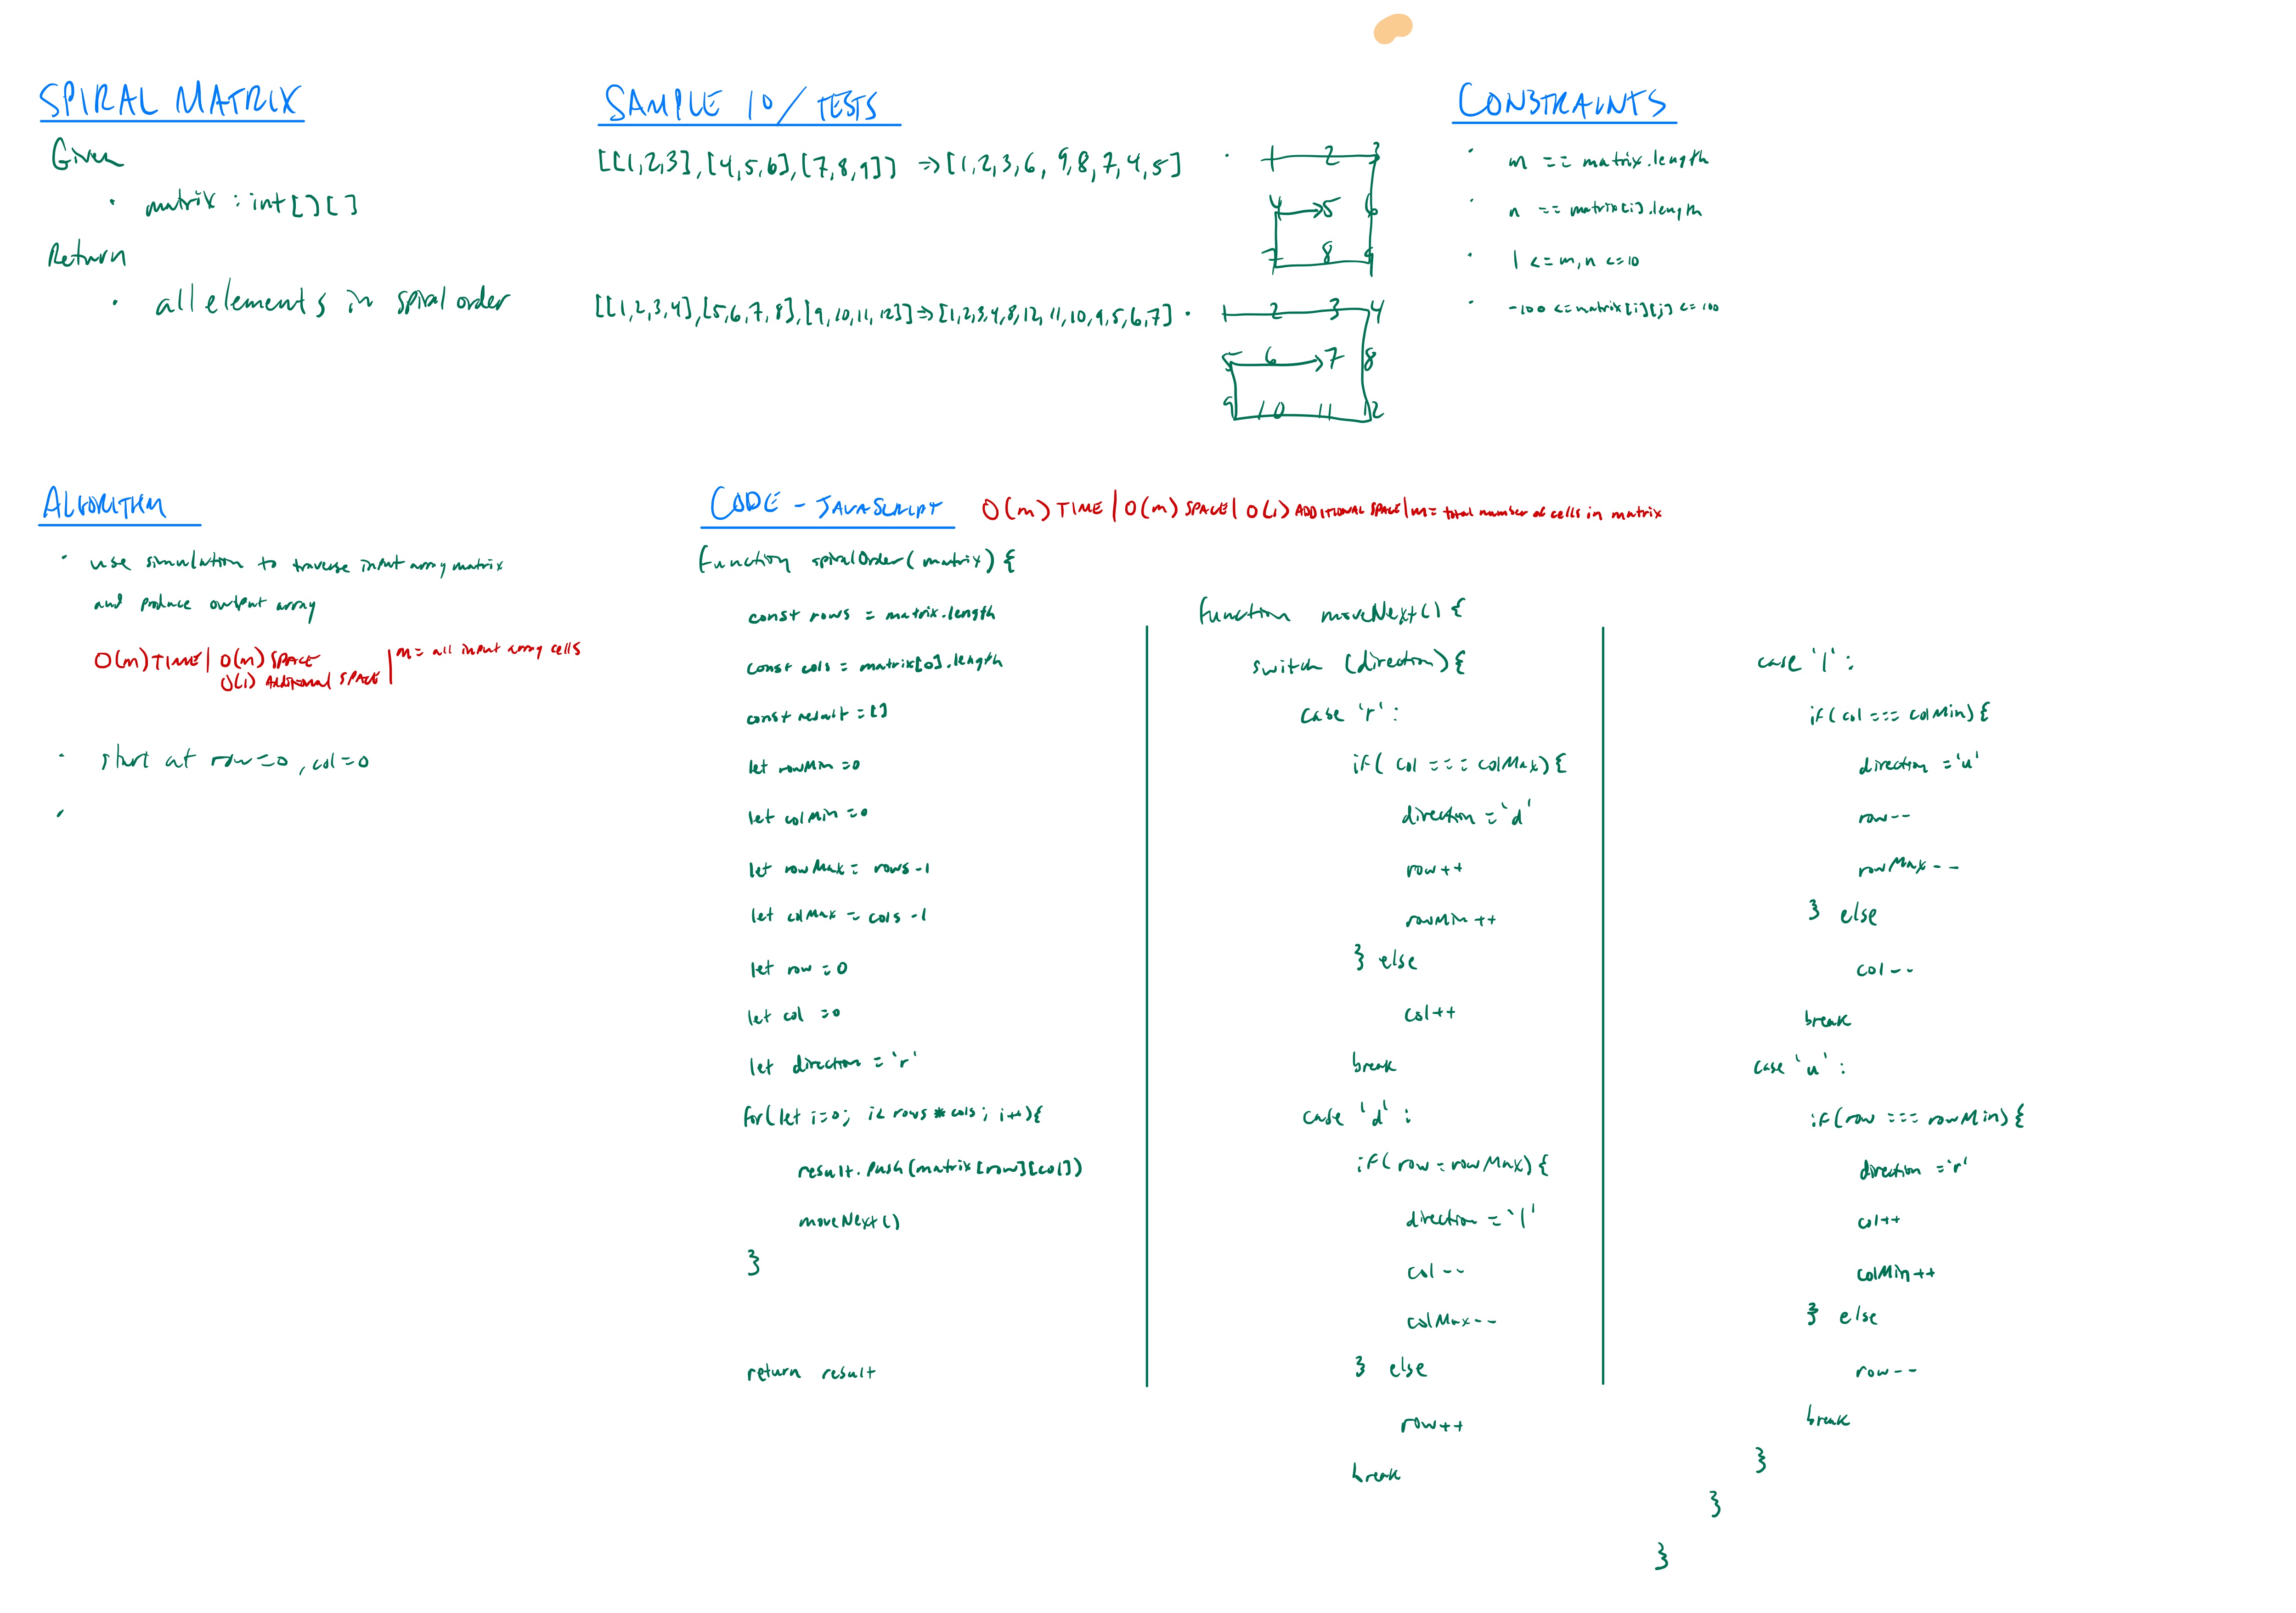 SPIRAL MATRIX
Given
· matrix : int[][]
Return
· all elements in spiral order
SAMPLE IO/TESTS
[[1,2,3],[4,5,6],[7,8,9]] => [1,2,3,6,9,8,7,4,5]
· 1 2 3
4 5 6
7 8 9
[[1,2,3,4],[5,6,7,8],[9,10,11,12]] => [1,2,3,4,8,12,11,10,9,5,6,7]
· 1 2 3 4
5 6 7 8
9 10 11 12
CONSTRAINTS
· m == matrix.length
· n == matrix[i].length
· 1 <= m, n <= 10
· -100 <= matrix[i][j] <= 100
ALGORITHM
· use simulation to traverse input array matrix
and produce output array
O(m) TIME | O(m) SPACE
O(1) ADDITIONAL SPACE | m = all input array cells
· start at row=0, col=0
·
CODE - JAVASCRIPT O(m) TIME | O(m) SPACE | O(1) ADDITIONAL SPACE | m = total number of cells in matrix
function spiralOrder(matrix){
const rows = matrix.length
const cols = matrix[0].length
const result = []
let rowMin = 0
let colMin = 0
let rowMax = rows -1
let colMax = cols -1
let row = 0
let col = 0
let direction = 'r'
for(let i=0; i< rows * cols; i++){
result.push(matrix[row][col])
moveNext()
}
return result
function moveNext() {
switch (direction){
case 'r':
if( col === colMax){
direction = 'd'
row++
rowMin++
} else
col++
break
case 'd':
if( row = rowMax){
direction = 'l'
col--
colMax--
} else
row++
break
case 'l':
if(col === colMin){
direction = 'u'
row--
rowMax--
} else
col--
break
case 'u':
if(row === rowMin){
direction = 'r'
col++
colMin++
} else
row--
break
}
}
}